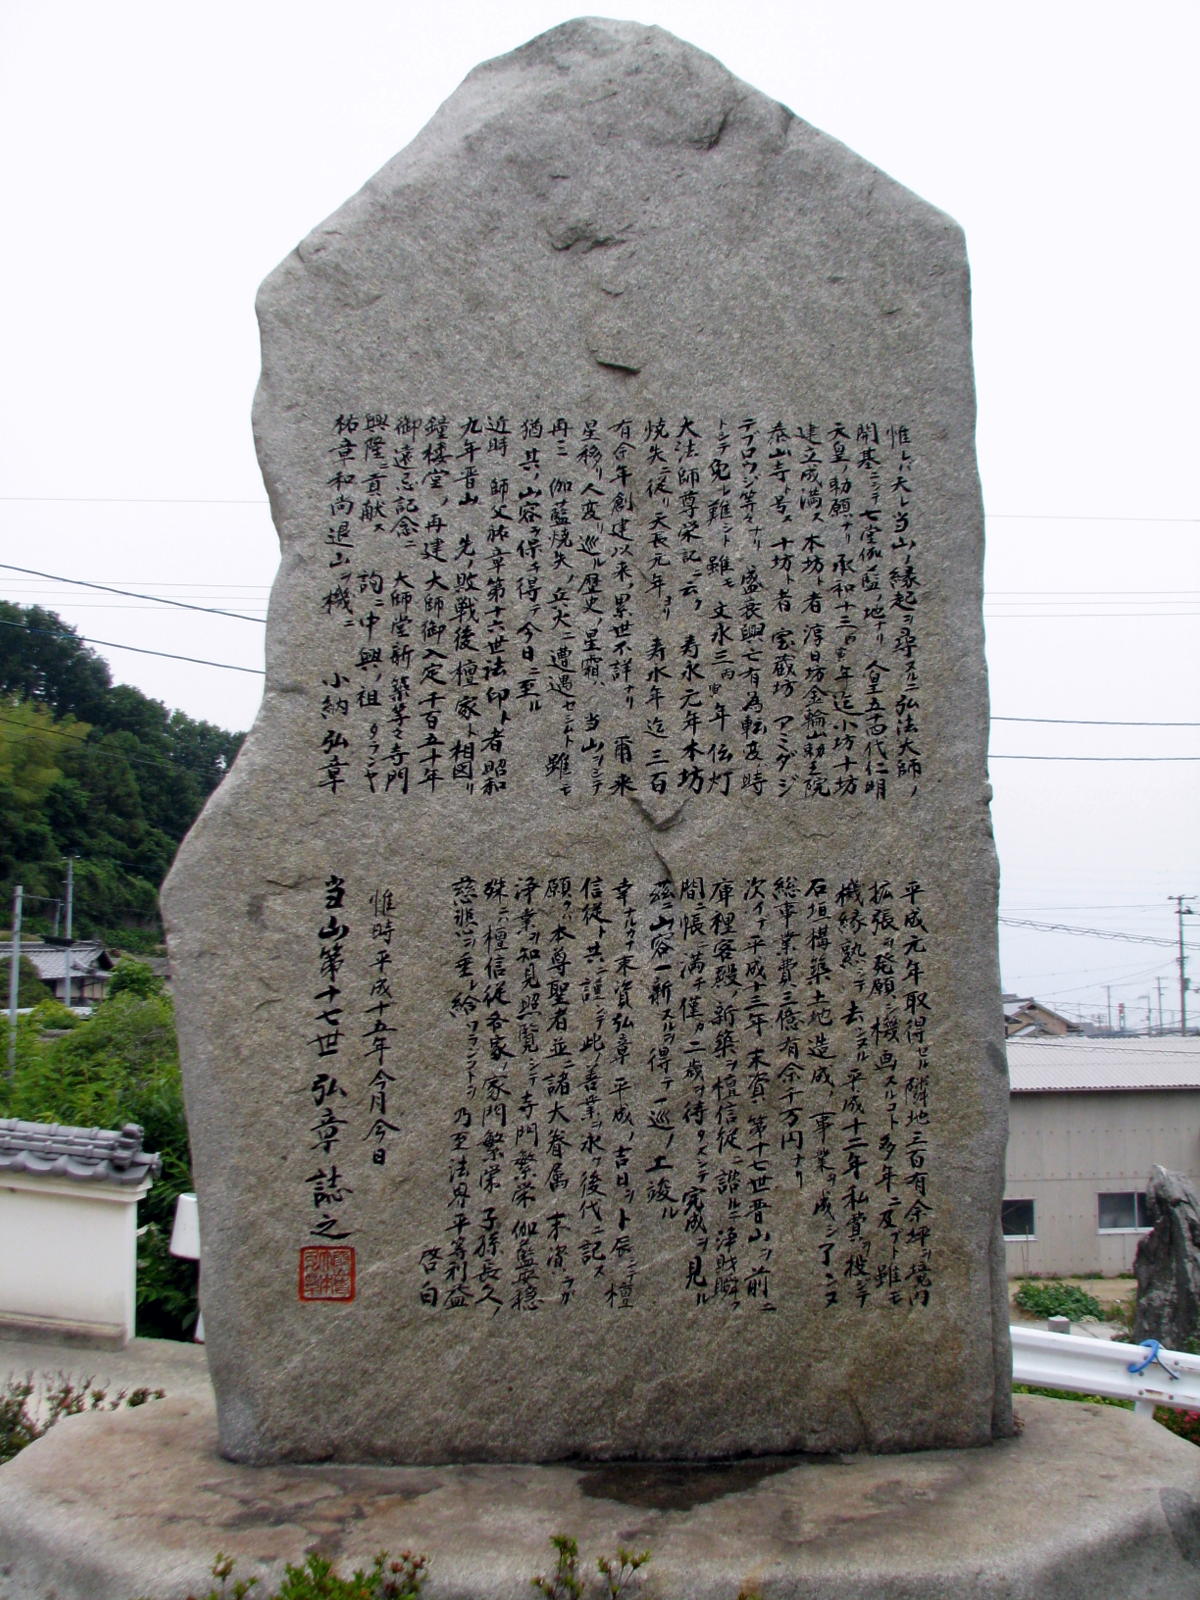 惟レバ夫レ当山ノ縁起ヲ尋スルニ弘法大師ノ
開基ニシテ七堂伽藍ノ地ナリ 人皇五十四代仁明
天皇ノ勅願ナリ 承和十三丙寅年迄小坊十坊
建立成満ス 本坊ト者 淳日坊金輪山勅王院
泰山寺ト号ス 十坊ト者 宝蔵坊 アミダジ
デプロウジ等々ナリ 盛衰興亡有為転変ノ時
トシテ免レ難シト雖モ 文永三丙寅年伝灯
大法師尊栄記ニ云ク 寿永元年本坊
焼失ニ従リ天長元年ヨリ 寿永年迄三百
有余年創建以来ノ累世不詳ナリ 爾来
星移リ人変リ巡ル歴史ノ星霜ハ 当山ヲシテ
再ニ 伽藍焼失ノ兵火ニ遭遇セシムト雖モ
猶其ノ山容ヲ保チ得テ今日ニ至ル
近時 師父祐章第十六世法印ト者昭和
九年晋山 先ノ敗戦後檀家ト相図リ
鐘楼堂ノ再建大師御入定千百五十年
御遠忌記念ニ 大師堂新築等々寺門
興隆ニ貢献ス 詢ニ中興ノ祖タランヤ
祐章和尚退山ヲ機ニ 小納弘章
平成元年取得セル隣地三百有余坪ヲ境内
拡張ヲ発願シ機画スルコト多年ニ及ブト雖モ
機縁熟シテ去ンヌル平成十二年私費ヲ投シテ
石垣構築土地造成ノ事業ヲ成シ了ンヌ
総事業費三億有余千万円ナリ
次イデ平成十三年末資第十七世晋山ヲ前ニ
庫裡客殿ノ新築ヲ檀信従ニ諮ルニ浄財瞬ク
間ニ帳ニ満チ僅カ二歳ヲ待タズシテ完成ヲ見ル
茲ニ山容一新スルヲ得テ一巡ノ工竣ル
幸ナルカナ末資弘章平成ノ吉日ヲト辰シテ檀
信従ト共ニ謹ンデ此ノ善業ヲ永ク後代ニ記ス
願クバ本尊聖者並ニ諸大眷属 末資ラガ
浄業ヲ知見照覧シテ寺門繁栄伽藍安穏
殊ニ檀信従各家ノ家門繁栄 子孫長久ノ
慈悲ヲ垂レ給ワランコトヲ 乃至法界平等利益
啓白
惟時平成十五年今月今日
当山第十七世 弘章 誌之